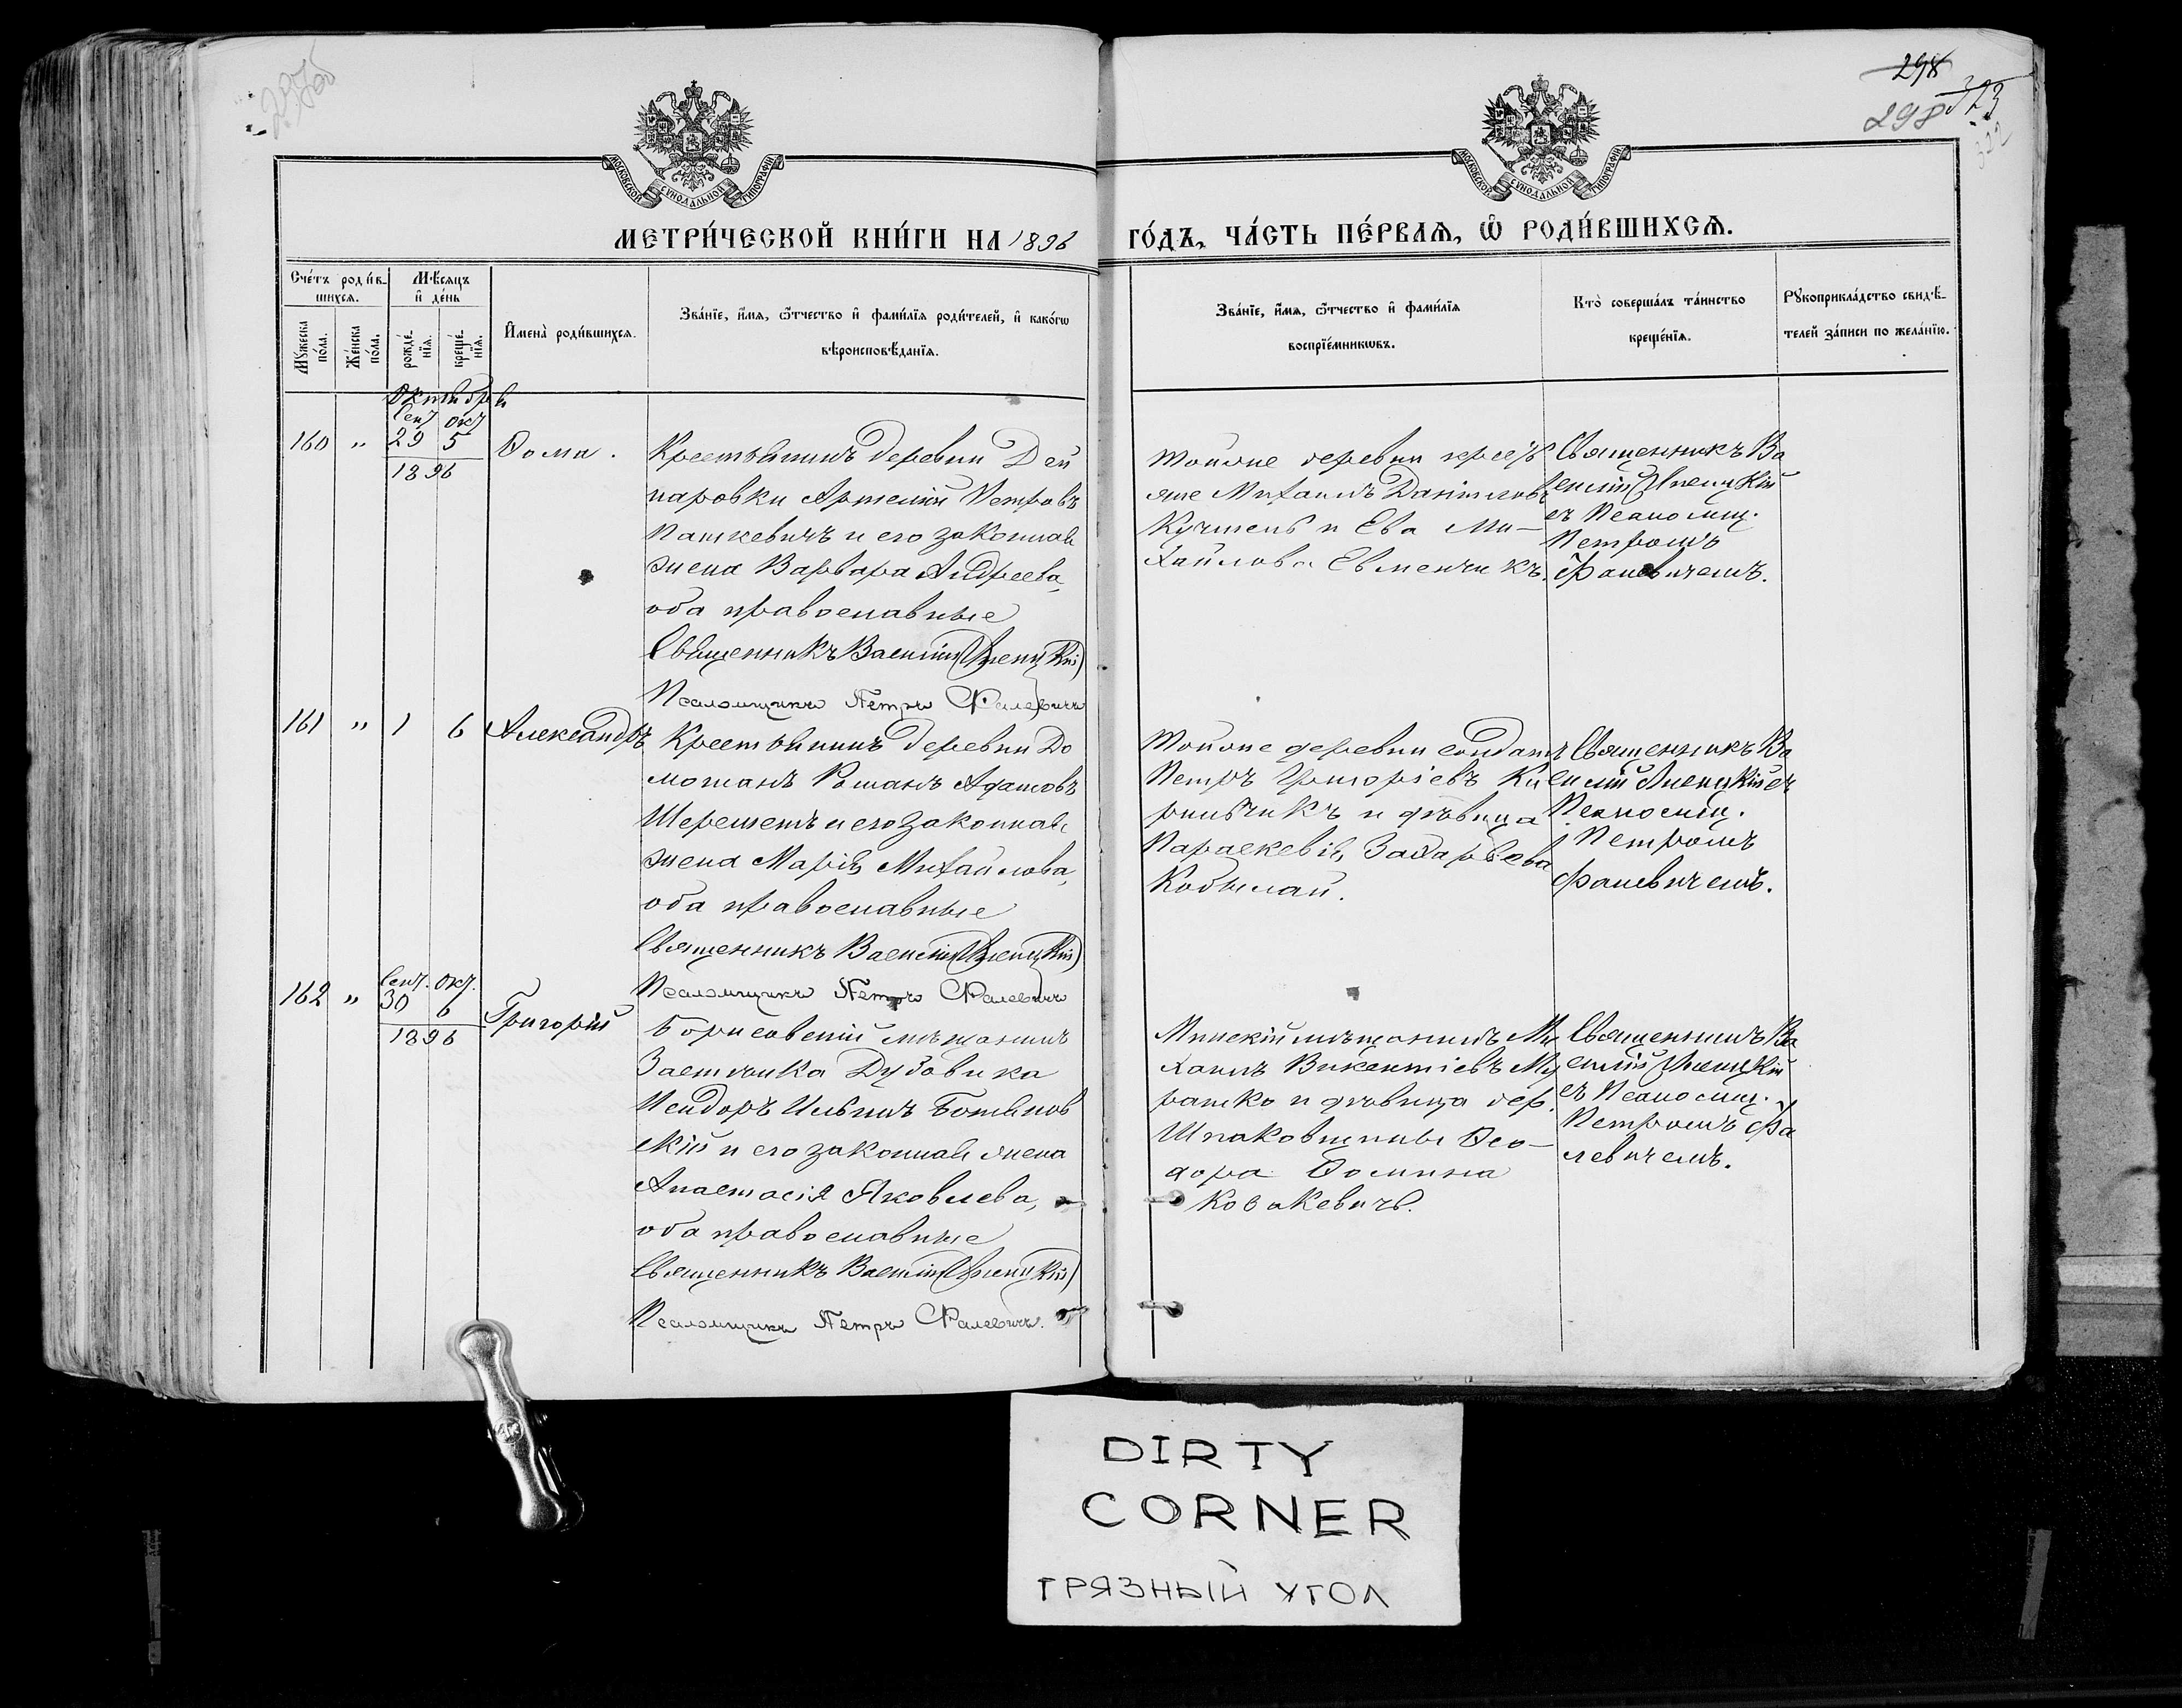 298
323
298
322
МОСКОВСКОЙ СУНОДАЛЬНОЙ ТИПОГРАФИИ
МОСКОВСКОЙ СУНОДАЛЬНОЙ ТИПОГРАФИИ
МЕТРИ́ЧЕСКОЙ КНИ́ГИ НА 1896
ГО́ДЪ, ЧА́СТЬ ПЕ́РВАЯ, Ѽ РОДИ́ВШИХСЯ.
Сче́тъ роди́в-
шихся.
Мѣсяцъ
и҆ де́нь
Му́жеска по́ла.
Же́нска по́ла.
рожде́нїя.
креще́нїя.
И҆мена̀ роди́вшихся.
Зва́нїе, и҆́мя, ѻ҆́тчество и҆ фами́лїя роди́телей, и҆ како́гѡ
вѣроисповѣ́данїя.
Зва́нїе, и҆́мя, ѻ҆́тчество и҆ фами́лїя
воспрїе́мникѡвъ.
Кто̀ соверша́лъ та́инство
креще́нїя.
Рукоприкла́дство свидѣ́-
телей за́писи по жела́нїю.
Октябрь
Сент Окт
160 " 29 5
1896
Ѳома.
Крестьянинъ деревни Дей
наровки Артемій Петровъ
Пашкевичъ и его законная
жена Варвара Андреева,
оба православные
Священникъ Василій
Псаломщикъ Петръ Фалевичъ
Тойоже деревни крестья
яне Михаилъ Даниловъ
Кучменъ и Ева Ми-
хайлова Евменчикъ.
Священникъ Ва
силій
съ Псаломщ.
Петромъ
Фалевичемъ.
161 " 1 6 Александръ
Крестьянинъ деревни До
можанъ Романъ Адамовъ
Шереметъ и его законная
жена Марія Михайлова,
оба православные
Священникъ Василій
Псаломщикъ Петръ Фалевичъ
Тойоже деревни солдатъ
Петръ Григорьевъ Ки
рильчикъ и дѣвица
Параскевія Захарьева
Кобылай.
Священникъ Ва
силій съ
Псаломщ.
Петромъ
Фалевичемъ.
Сент. Окт.
162 " 30 6
1896
Григорій
Борисовскій мѣщанинъ
Застѣнка Дубовика
Исидоръ Ильинъ Ботянов
скій и его законная жена
Анастасія Яковлева,
оба православные
Священникъ Василій
Псаломщикъ Петръ Фалевичъ.
Минскій мѣщанинъ Ми
хаилъ Викентіевъ Му
рашко и дѣвица дер.
Шпаковщины Ѳео-
дора Ѳомина
Ковакевичъ.
Священникъ Ва
силій
съ Псаломщ.
Петромъ Фа
левичемъ.
DIRTY
CORNER
ГРЯЗНЫЙ УГОЛ